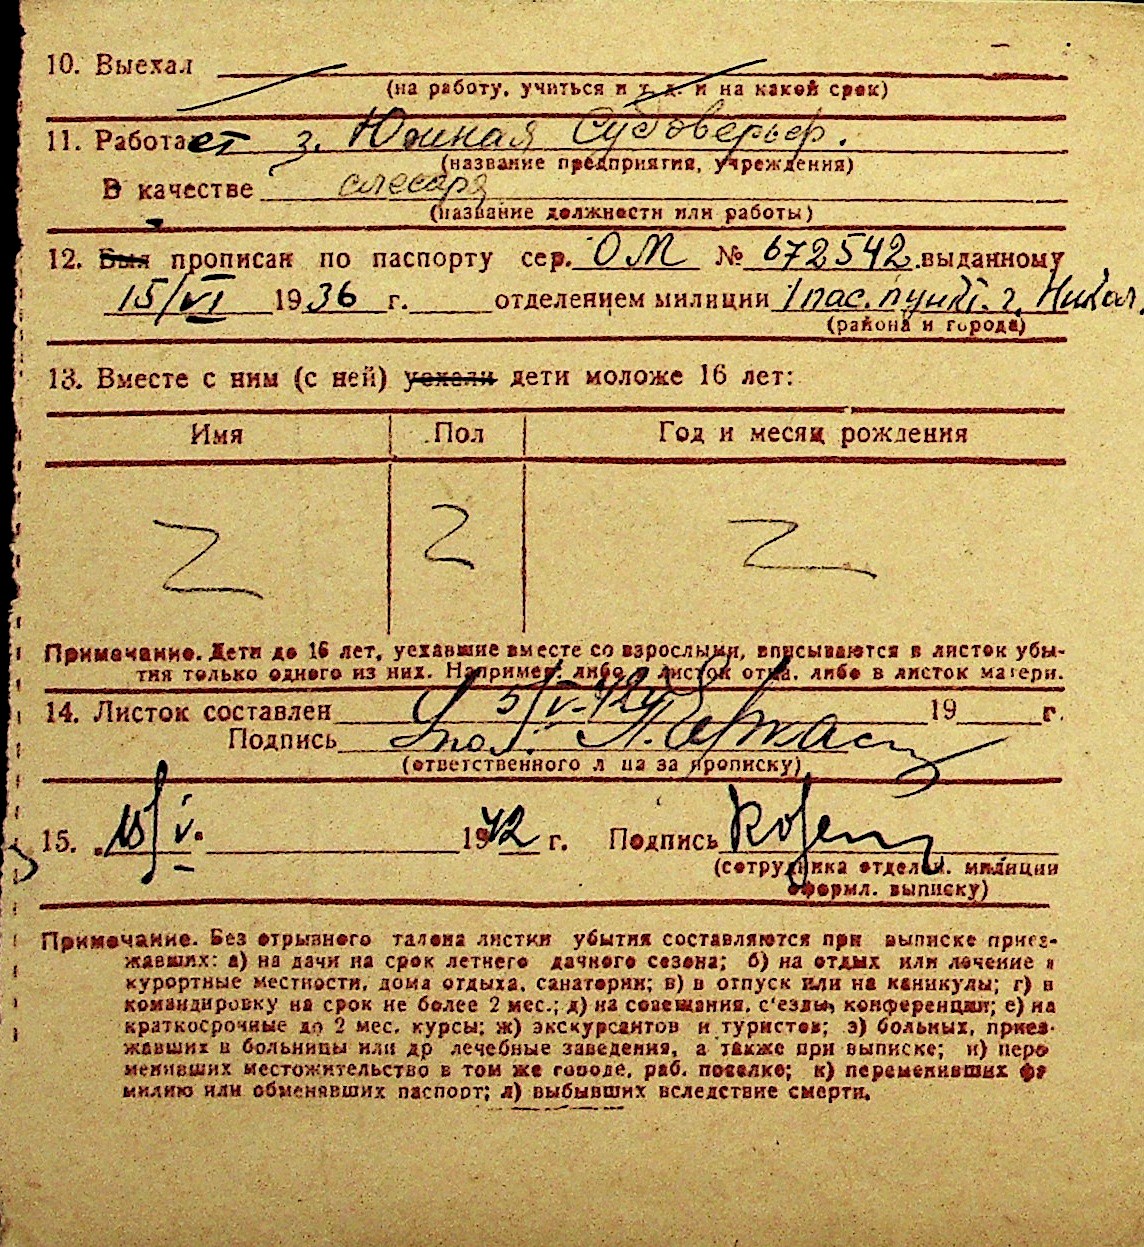 10. Выехал
(на работу, учиться и т. д. и на какой срок)
11. Работает з. Южная Судоверьф.
(название предприятия, учреждения)
В качестве слесаря
(название должности или работы)
12. Был прописан по паспорту сер. ОМ № 672542 выданному
15/VI 1936 г. отделением милиции 1 пас. пункт. г. Никол.
(района и города)
13. Вместе с ним (с ней) уехали дети моложе 16 лет:
Имя Пол Год и месяц рождения
Z Z Z
Примечание. Дети до 16 лет, уехавшие вместе со взрослыми, вписываются в листок убы-
тия только одного из них. Например, либо в листок отца, либо в листок матери.
14. Листок составлен 5/V-42 19 г.
Подпись
(ответственного лица за прописку)
15. 15/V. 1942 г. Подпись
(сотрудника отделен. милиции
оформл. выписку)
Примечание. Без отрывного талона листки убытия составляются при выписке приез-
жавших: а) на дачи на срок летнего дачного сезона; б) на отдых или лечение в
курортные местности, дома отдыха, санатории; в) в отпуск или на каникулы; г) в
командировку на срок не более 2 мес.; д) на совещания, с'езды, конференции; е) на
краткосрочные до 2 мес. курсы; ж) экскурсантов и туристов; з) больных, приез-
жавших в больницы или др лечебные заведения, а также при выписке; и) пере
менивших местожительство в том же городе, раб. поселке; к) переменивших фа
милию или обменявших паспорт; л) выбывших вследствие смерти.